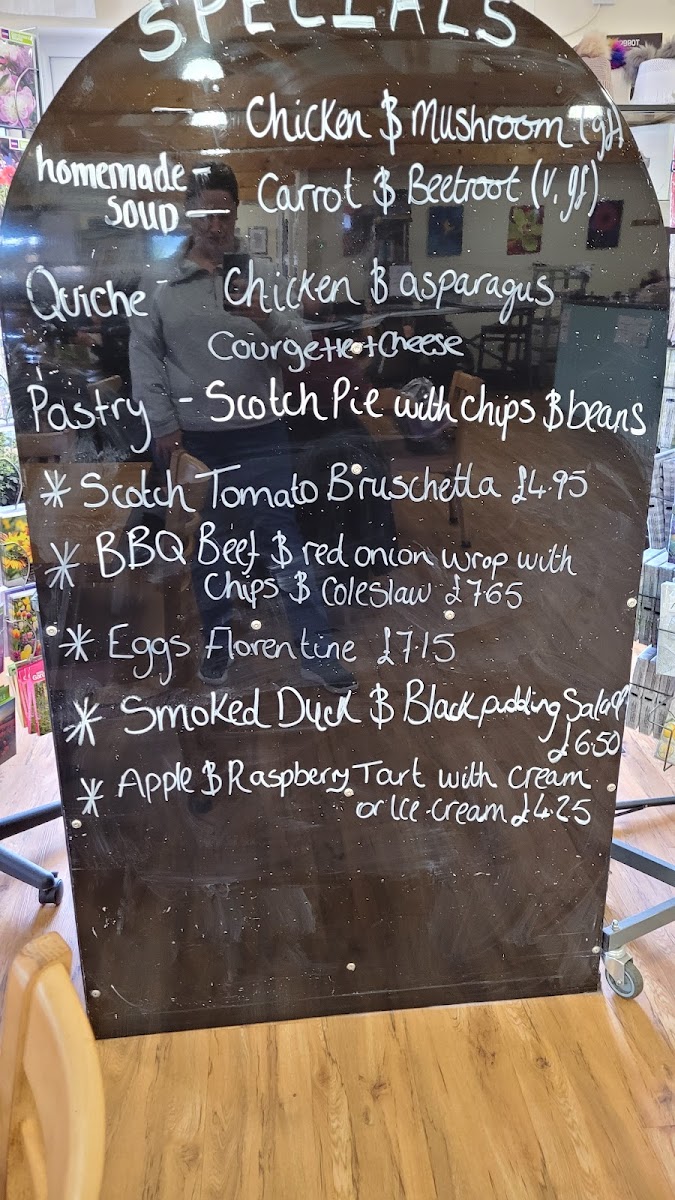 SPECIALS
Chicken & Mushroom (gf)
homemade -
soup - Carrot & Beetroot (v, gf)
Quiche - Chicken & asparagus
Courgette + Cheese
Pastry - Scotch Pie with chips & beans
* Scotch Tomato Bruschetta £4.95
* BBQ Beef & red onion wrap with
Chips & Coleslaw £7.65
* Eggs florentine £7.15
* Smoked Duck & Black pudding Salad
£6.50
* Apple & Raspbery Tart with cream
or Ice-cream £4.25